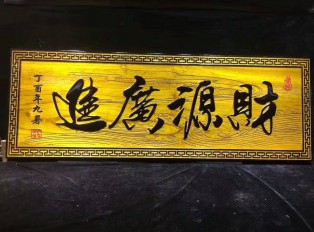 財源廣進
丁酉年九月